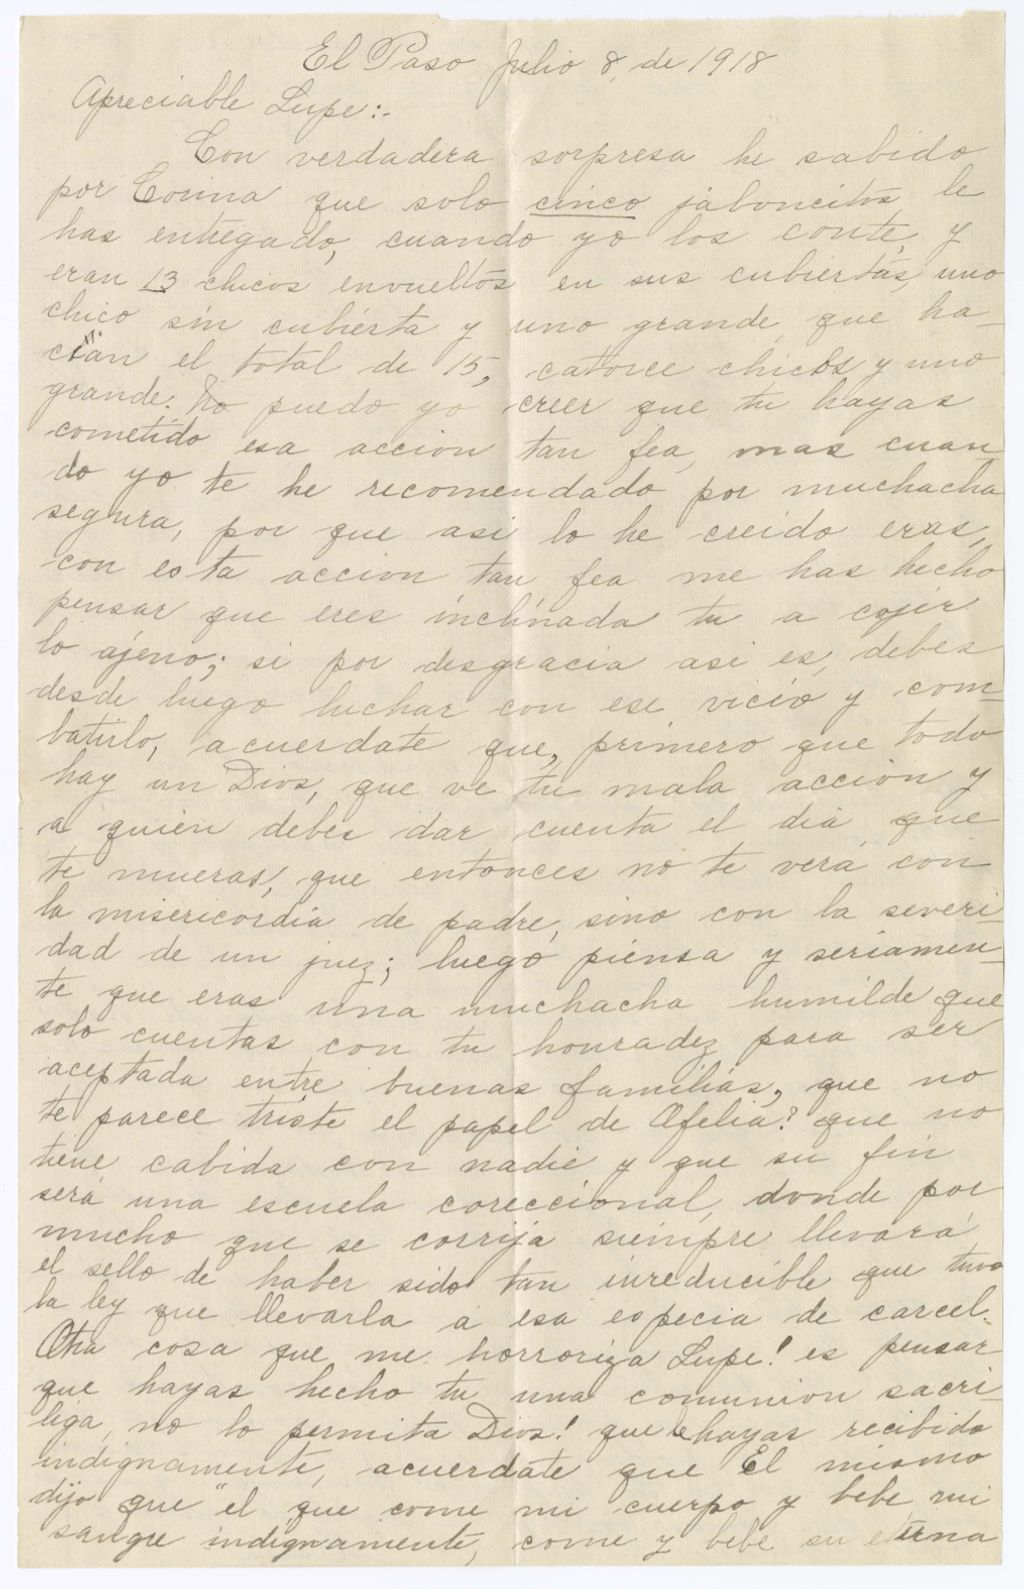 El Paso Julio 8, de 1918
Apreciable Lupe:-
Con verdadera sorpresa he sabido
por Corina que solo cinco jaboncitos le
has entregado, cuando yo los conte, y
eran 13 chicos envueltos en sus cubiertas, uno
chico sin cubierta y uno grande, que ha-
cian el total de 15, catorce chicos y uno
grande. No puedo yo creer que tu hayas
cometido esa accion tan fea, mas cuan
do yo te he recomendado por muchacha
segura, por que asi lo he creido eras,
con esta accion tan fea me has hecho
pensar que eres inclinada tu a cojer
lo ajeno; si por desgracia asi es, debes
desde luego luchar con ese vicio y com-
batirlo, acuerdate que, primero que todo
hay un Dios, que ve tu mala acción y
a quien debes dar cuenta el dia que
te mueras, que entonces no te verá con
la misericordia de padre, sino con la severi-
dad de un juez; luego piensa y seriamen-
te que eras una muchacha humilde que
solo cuentas con tu honradez para ser
aceptada entre buenas familias, que no
te parece triste el papel de Ofelia? que no
tiene cabida con nadie y que su fin
será una escuela coreccional, donde por
mucho que se corrija siempre llevará
el sello de haber sido tan inreducible que tuvo
la ley que llevarla á esa especia de carcel.
Otra cosa que me horroriza Lupe! es pensar
que hayas hecho tu una comunion sacri-
liga, no lo permita Dios! que le hayas recibido
indignamente, acuerdate que El mismo
dijo que "el que come mi cuerpo y bebe mi
sangre indignamente, come y bebe su eterna